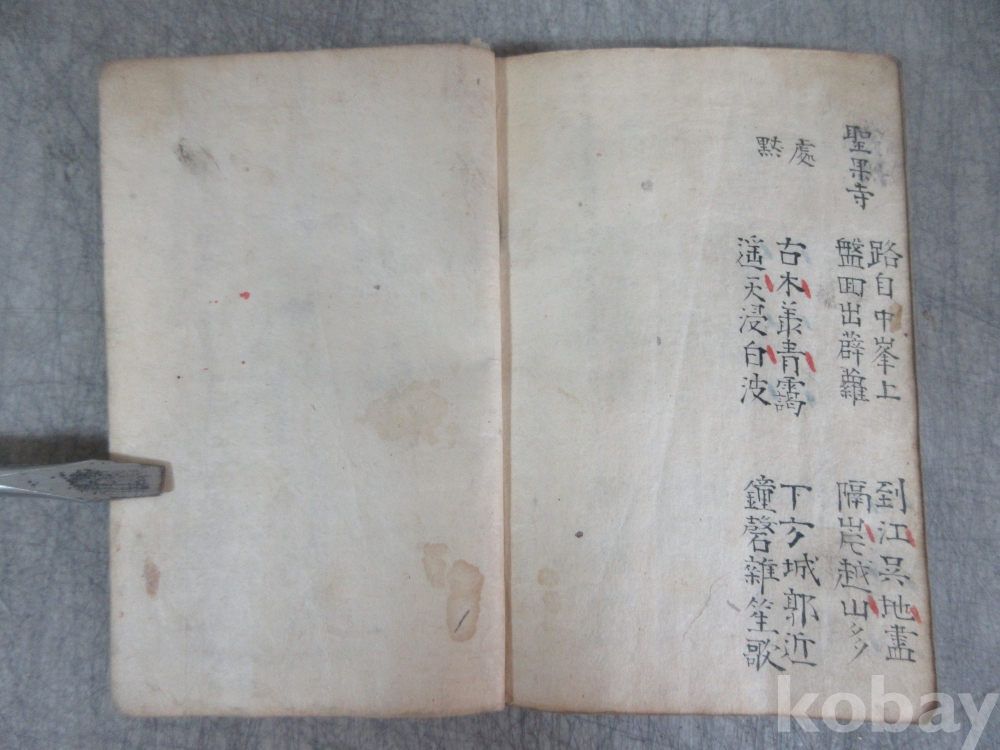 聖果寺
處黙
路自中峯上
盤回出薜蘿
到江呉地盡
隔岸越山多
古木叢青靄
遥天浸白波
下方城郭近
鐘磬雜笙歌
kobay